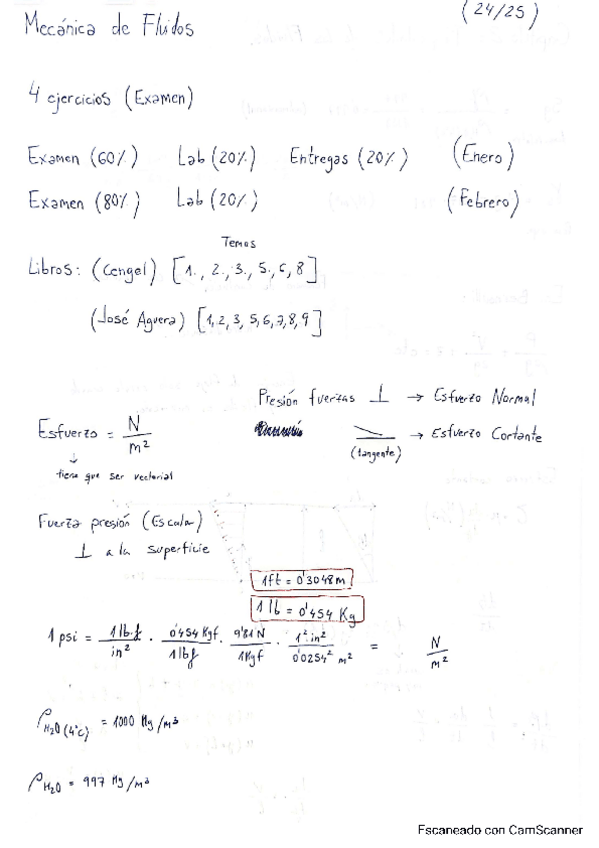 Mecánica de Fluidos
(24/25)
4 ejercicios (Examen)
Examen (60%) Lab (20%) Entregas (20%) (Enero)
Examen (80%) Lab (20%) (Febrero)
Temas
Libros: (Cengel) [1., 2., 3., 5., 6, 8]
(José Aguera) [1, 2, 3, 5, 6, 7, 8, 9]
Presión fuerzas ⊥ → Esfuerzo Normal
Esfuerzo = N/m² → Esfuerzo Cortante
(tangente)
↓
tiene que ser vectorial
Fuerza presión (Escalar)
⊥ a la superficie
1ft = 0'3048 m
1 lb = 0'454 Kg
1 psi = 1 lb·f/in² · 0'454 Kgf/1 lbf · 9'81 N/1 Kgf · 1² in²/0'0254² m² = N/m²
ρH₂O (4°C) = 1000 Kg/m³
ρH₂O = 997 Kg/m³
Escaneado con CamScanner